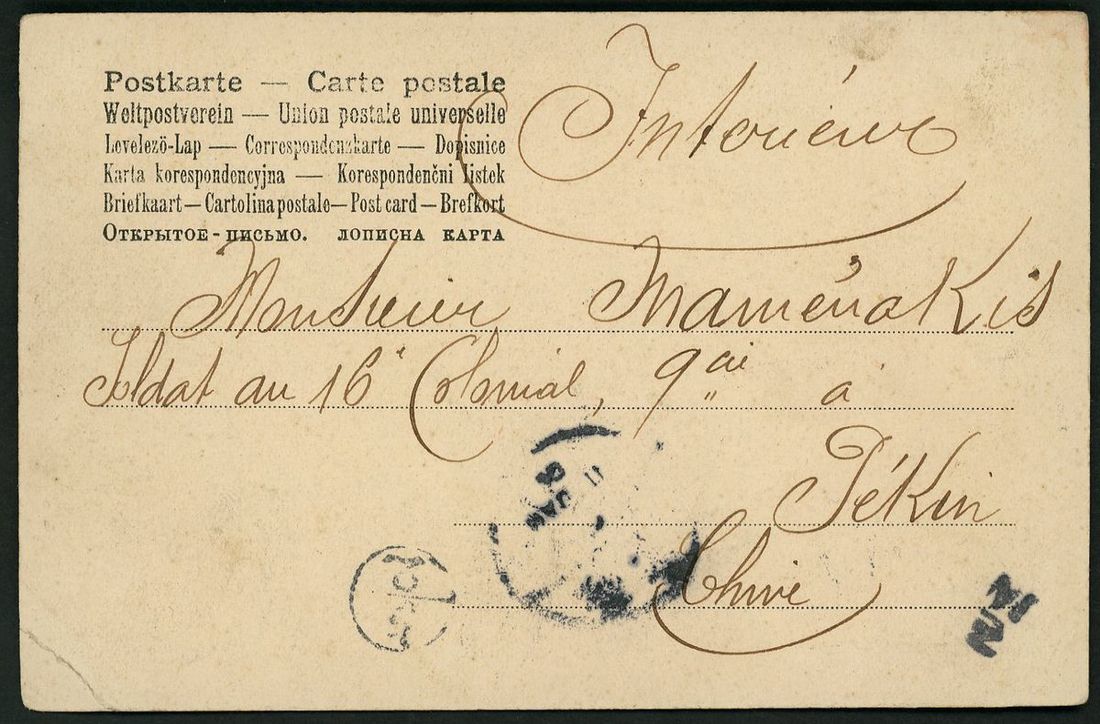 Postkarte — Carte postale
Weltpostverein — Union postale universelle
Levelező-Lap — Correspondenzkarte — Dopisnice
Karta korespondencyjna — Korespondenčni listek
Briefkaart — Cartolina postale — Post card — Brefkort
Открытое-письмо. лописна карта
Intérieure
Monsieur Mamérakis
Soldat au 16e Colonial, 9 cie à
Pékin
Chine
JAN